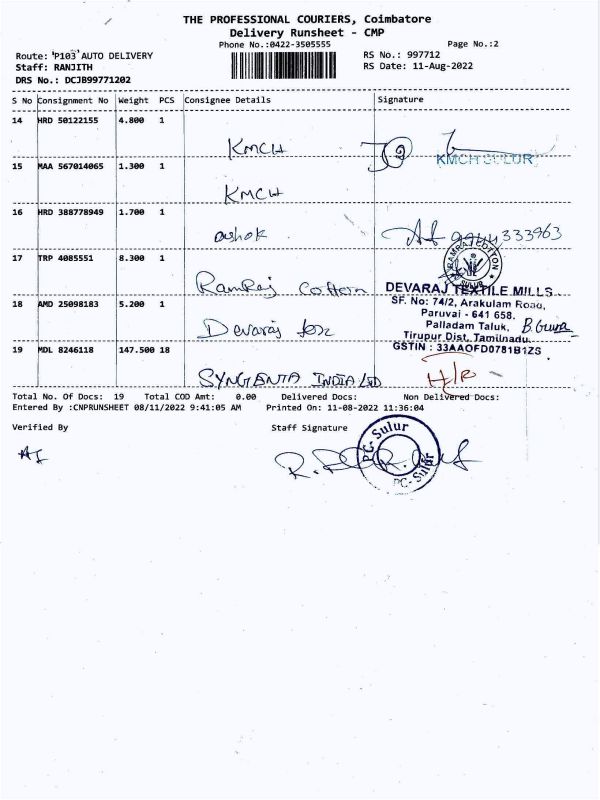 THE PROFESSIONAL COURIERS, Coimbatore
Delivery Runsheet - CMP
Phone No.:0422-3505555
Page No.:2
Route: 'P103' AUTO DELIVERY
RS No.: 997712
Staff: RANJITH
RS Date: 11-Aug-2022
DRS No.: DCJB99771202
S No Consignment No Weight PCS Consignee Details Signature
14 HRD 50122155 4.800 1
KMCH
KMCH SULUR
15 MAA 567014065 1.300 1
KMCH
16 HRD 388778949 1.700 1
ashok
17 TRP 4085551 8.300 1
RAMRAJ COTTON
SULUR
Ramraj Cotton
DEVARAJ TEXTILE MILLS
18 AMD 25098183 5.200 1
SF. No: 74/2, Arakulam Road,
Paruvai - 641 658.
Devaraj
Palladam Taluk,
Tirupur Dist, Tamilnadu.
19 MDL 8246118 147.500 18
GSTIN : 33AAOFD0781B1ZS
SYNGENTA INDIA Ltd
Total No. Of Docs: 19 Total COD Amt: 0.00 Delivered Docs: Non Delivered Docs:
Entered By :CNPRUNSHEET 08/11/2022 9:41:05 AM Printed On: 11-08-2022 11:36:04
Verified By
Staff Signature
PC-Sulur
PC-Sulur